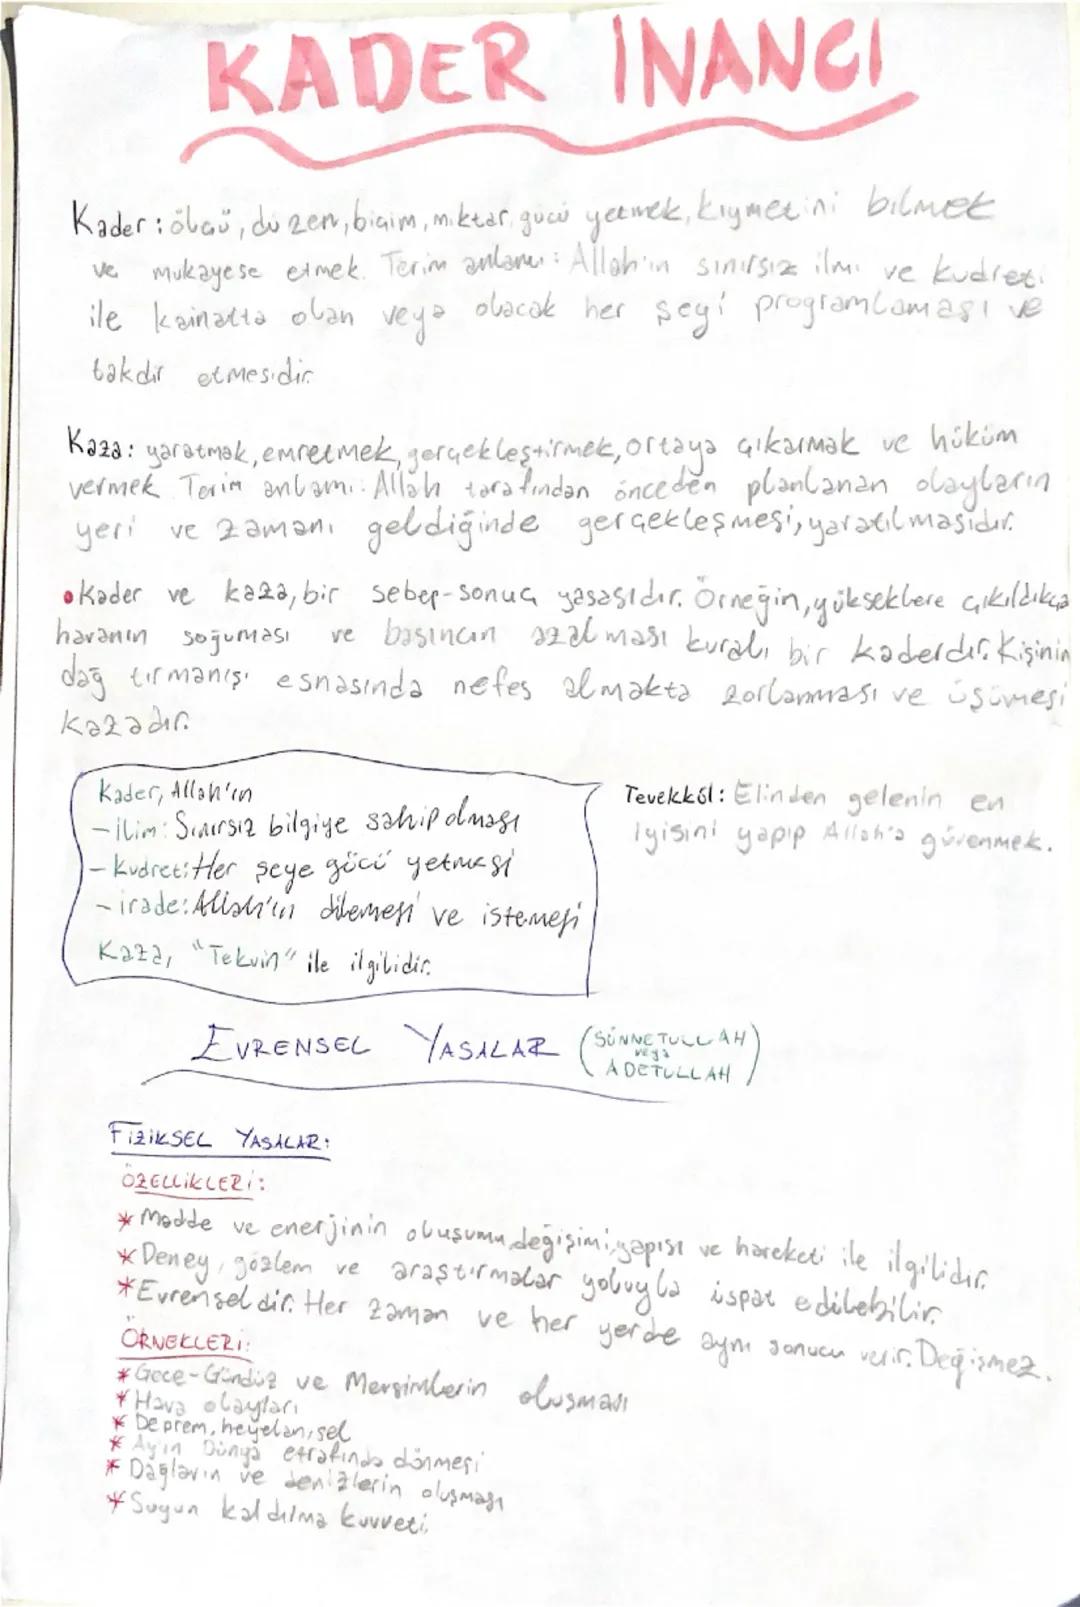 KADER İNANCI
Kader: ölçü, düzen, biçim, miktar, gücü yetmek, kıymetini bilmek
ve mukayese etmek. Terim anlamı: Allah'ın sınırsız ilmi ve kudreti
ile kainatta olan veya olacak her şeyi programlaması ve
takdir etmesidir.
Kaza: yaratmak, emretmek, gerçekleştirmek, ortaya çıkarmak ve hüküm
vermek. Terim anlamı: Allah tarafından önceden planlanan olayların
yeri ve zamanı geldiğinde gerçekleşmesi, yaratılmasıdır.
• Kader ve kaza, bir sebep-sonuç yasasıdır. Örneğin, yükseklere çıkıldıkça
havanın soğuması ve basıncın azalması kuralı bir kaderdir. Kişinin
dağ tırmanışı esnasında nefes almakta zorlanması ve üşümesi
kazadır.
Kader, Allah'ın
- ilim: Sınırsız bilgiye sahip olması
- kudret: Her şeye gücü yetmesi
- irade: Allah'ın dilemesi ve istemesi
Kaza, "Tekvin" ile ilgilidir.
Tevekkül: Elinden gelenin en
iyisini yapıp Allah'a güvenmek.
EVRENSEL YASALAR (SÜNNETULLAH
veya
ADETULLAH)
FİZİKSEL YASALAR:
ÖZELLİKLERİ:
* Madde ve enerjinin oluşumu, değişimi, yapısı ve hareketi ile ilgilidir.
* Deney, gözlem ve araştırmalar yoluyla ispat edilebilir.
* Evrenseldir. Her zaman ve her yerde aynı sonucu verir. Değişmez.
ÖRNEKLERİ:
* Gece-Gündüz ve Mevsimlerin oluşması
* Hava olayları
* Deprem, heyelan, sel
* Ay'ın Dünya etrafında dönmesi
* Dağların ve denizlerin oluşması
* Suyun kaldırma kuvveti.